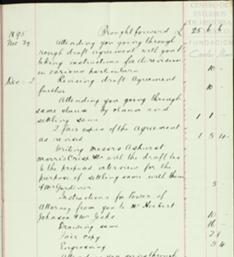 1895 Brought forward £ 25 6 6
Nov 29 Attending you going through
rough draft agreement with you &
taking instructions for the revision
in various particulars 10 -
Dec 2 Revising draft Agreement
further 10 -
Attending you going through
same clause by clause and
settling same 1 1
2 fair copies of the Agreement
as revised 1 5 4
Writing Messrs Ashurst
Morris Crisp &Co with the draft &
to the proposed interview for the
purpose of settling same with them
& 5
Instructions for Power of
Attorney from you to Mr Herbert
Johnson & Mr 10
Drawing same 10
Fair copy
Engrossing
Attending you going through